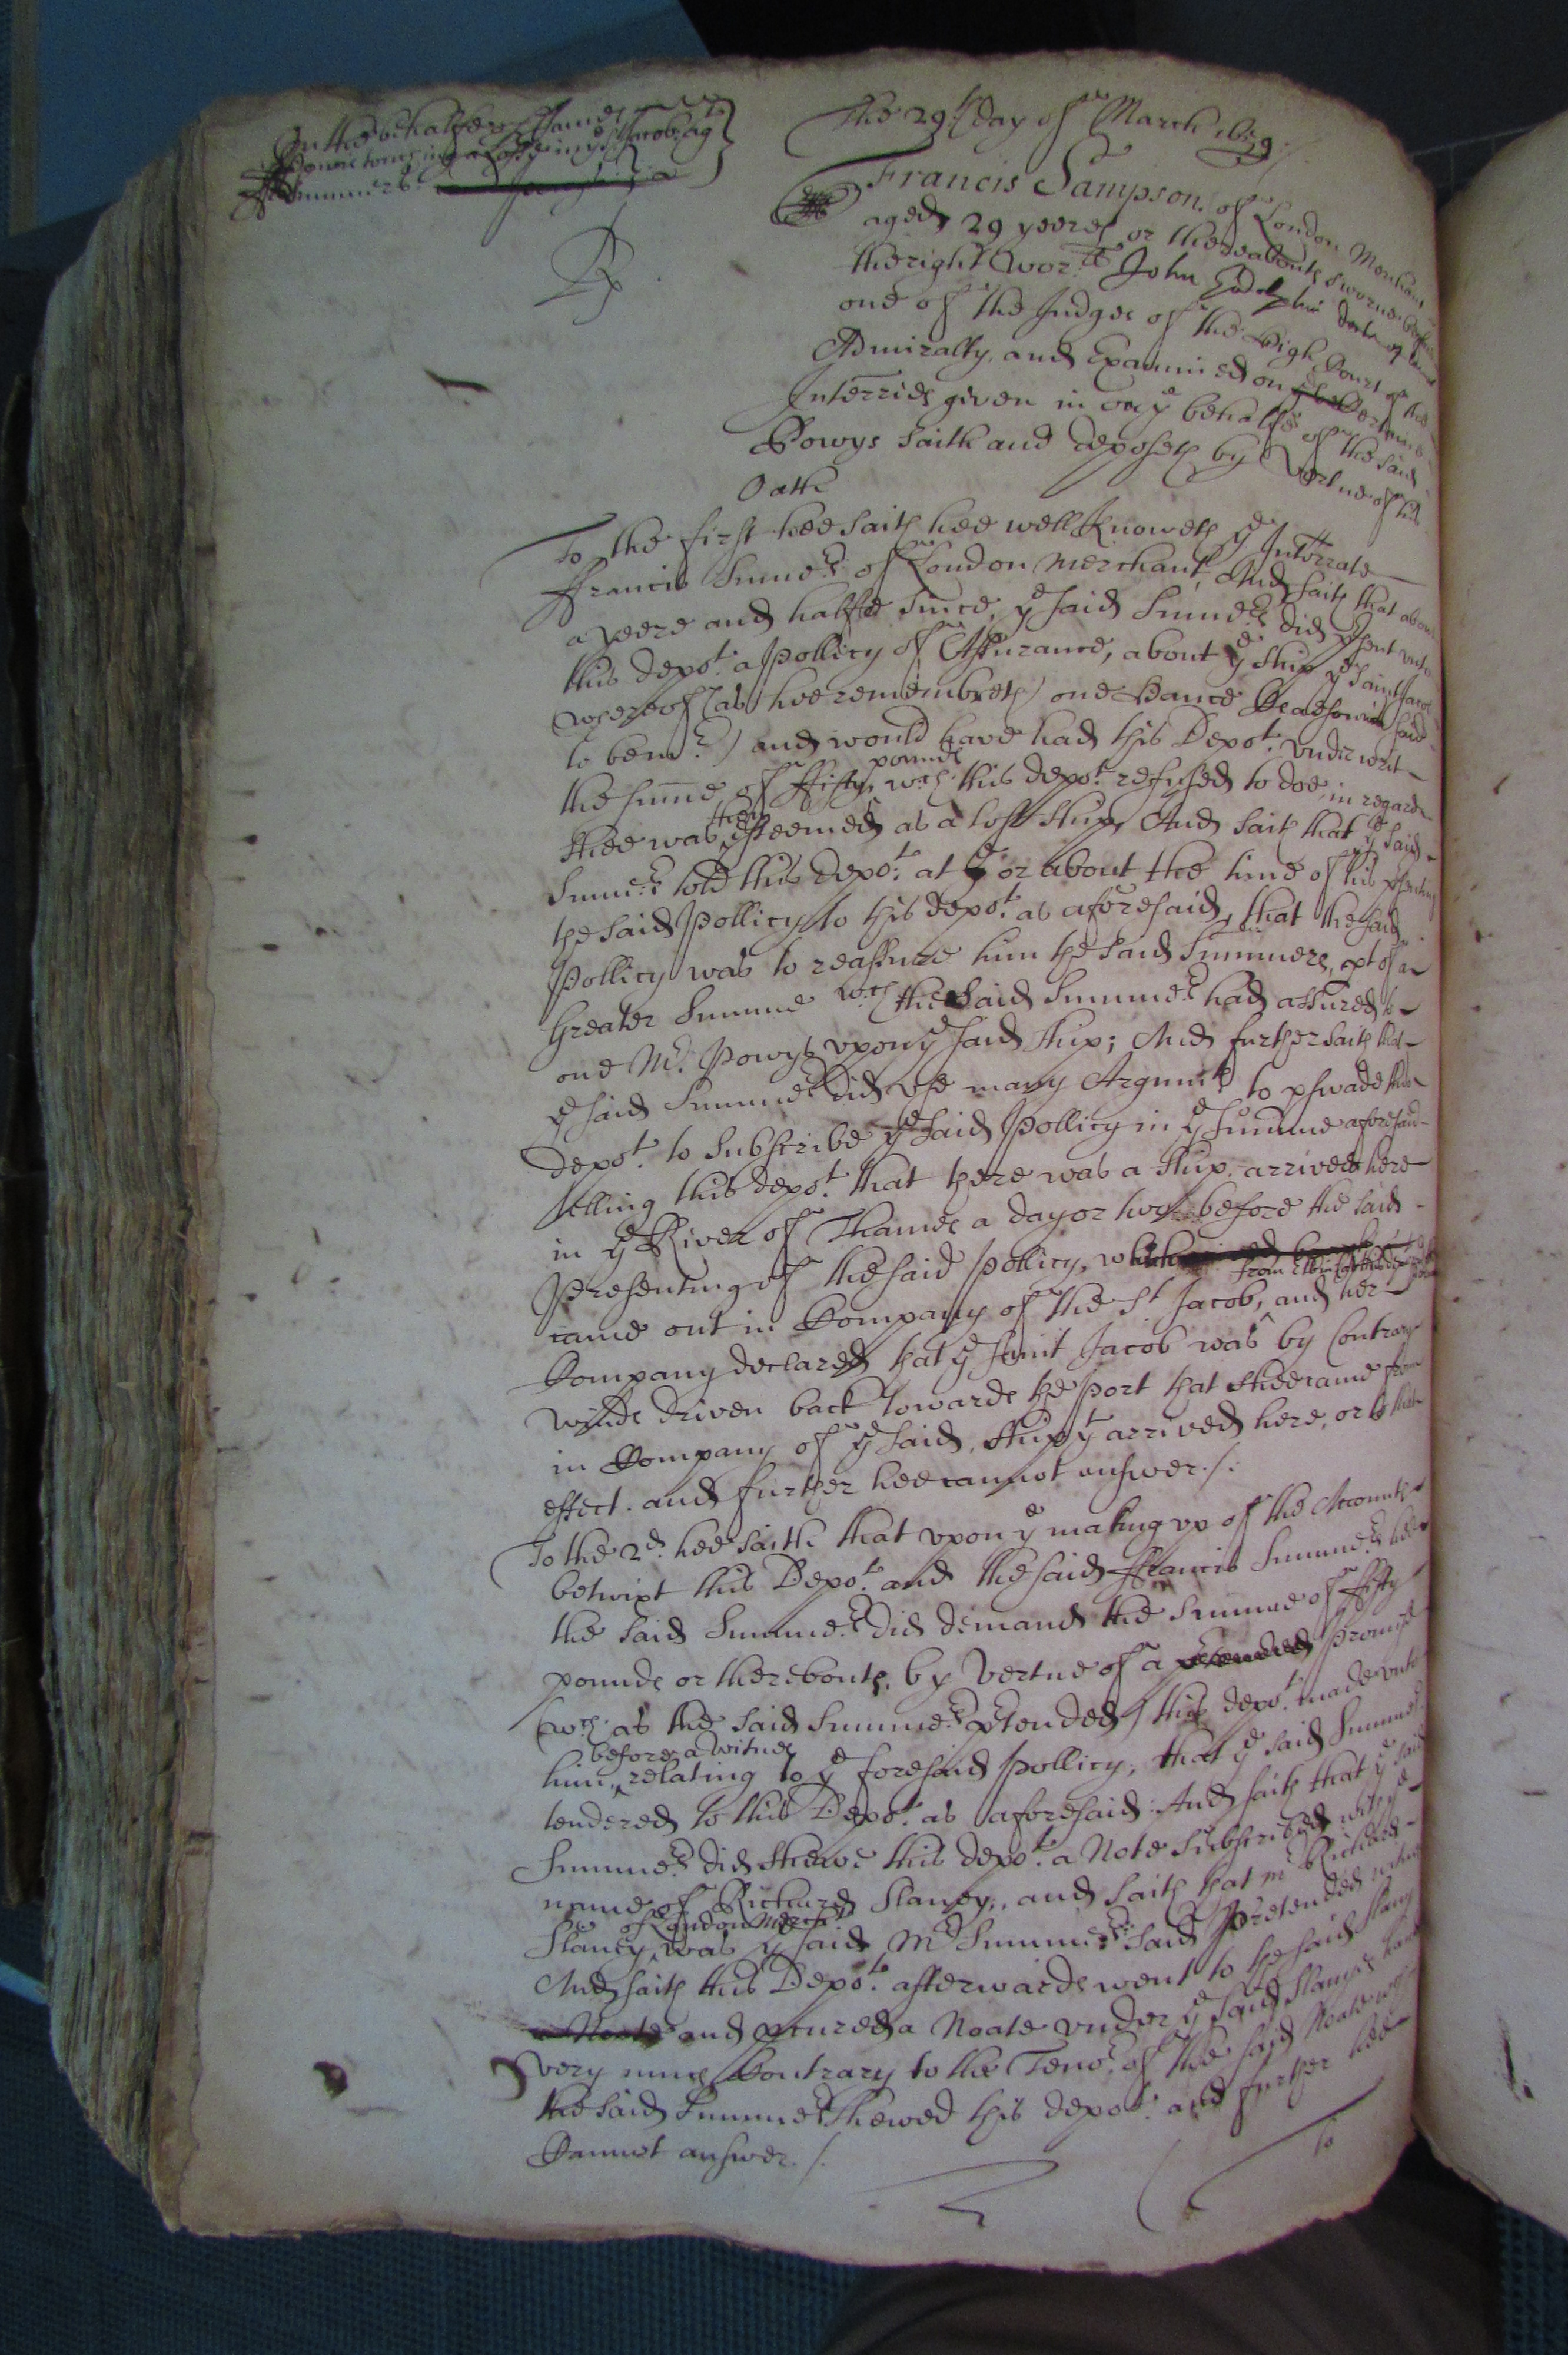 On the behalfe of James
Powis touching a losse in ye St Jacob agt
Summers
The 29th day of March 1659
Francis Sampson of London Merchant
aged 29 yeeres or thereabouts sworne before
the right worll John Godolphin Doctor of Lawes
one of the Judges of the High Court of the
Admiralty, and Examined on
Interries given in on ye behalfe of the said
Powys saith and deposeth by Vertue of his
Oath
To the first hee saith hee well knoweth ye Interrate
ffrancis Sumers of London Merchant, And saith that about
a yeere and halfe since, ye said Sumers did psent unto
this depot a Pollicy of Assurance, about ye ship ye Saint Jacob
whereof (as hee remembreth) one Hance was said
to bee mr) and would have had this Depot underwrit
the sume of ffifty pounds wch this depot refused to doe, in regard
shee was then esteemed as a lost ship, And saith that ye said
Sumers told this depot at or about the time of his psenting
the said Pollicy to this depot as aforesaid, that the said
Pollicy was to reassure him the said Summers, pt of a
Greater Summe wch the said Summers had assured to
one Mr Powys upon ye said ship; And further saith that
ye said Summers did use many Argumts to pswade this
depot to subscribe ye said Pollicy in ye Summe aforesaid
telling this depot that there was a ship arrived here
in ye River of Thames a day or two before the said
Presenting of the said Pollicy, which
came out in Company of the St Jacob, and her
Company declared that ye Saint Jacob was by Contrary
winds driven back towards the Port that shee came from
in Company of ye said ship yt arrived here, or to that
effect. and further hee cannot answer./.
To the 2d hee saith that upon ye making up of the Accounts
betwixt this Depot and the said ffrancis Summers hee
the said Summers did demand the Summe of fifty
pounds or thereabouts, by Vertue of a pretended Promise
(wch as the said Summers ptended) this depot made unto
him, before a witnes relating to ye foresaid Pollicy, that ye said Summers
tendered to this Depot as aforesaid: And saith that ye said
Summers did shewe this depot a Note subscribed with ye
name of Richard Slaney, and saith that mr Richard
Slaney, of London Merchant was ye said Mr Summers said Pretended witnes
And saith this Depot afterwards went to the said Slany
a Noate and pcured a Noate under ye said Slanyes hand
very much Contrary to the Tenor of the said Noate wch
the said Summers shewed this depot and further hee
Cannot answer./.
To